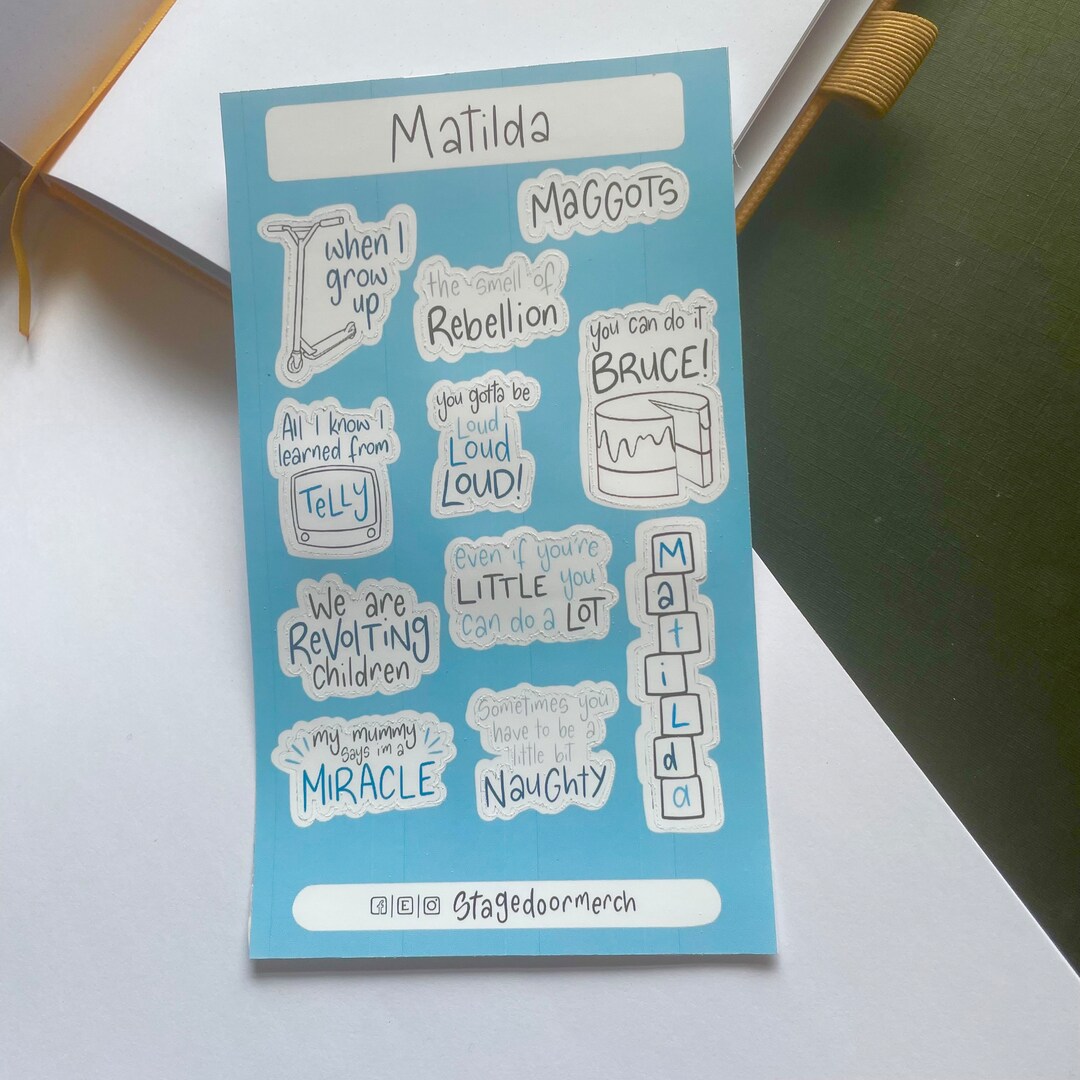 Matilda
MaGGOTS
when I
grow
up
the smell of
Rebellion
you can do it
BRUCE!
All I know I
learned from
TeLLY
you gotta be
Loud
Loud
LOUD!
even if you're
LITTLE you
can do a LOT
M
a
t
i
L
d
a
We are
ReVOLTING
children
Sometimes you
have to be a
little bit
NauGhty
my mummy
says i'm a
MIRACLE
f|E| Stagedoormerch